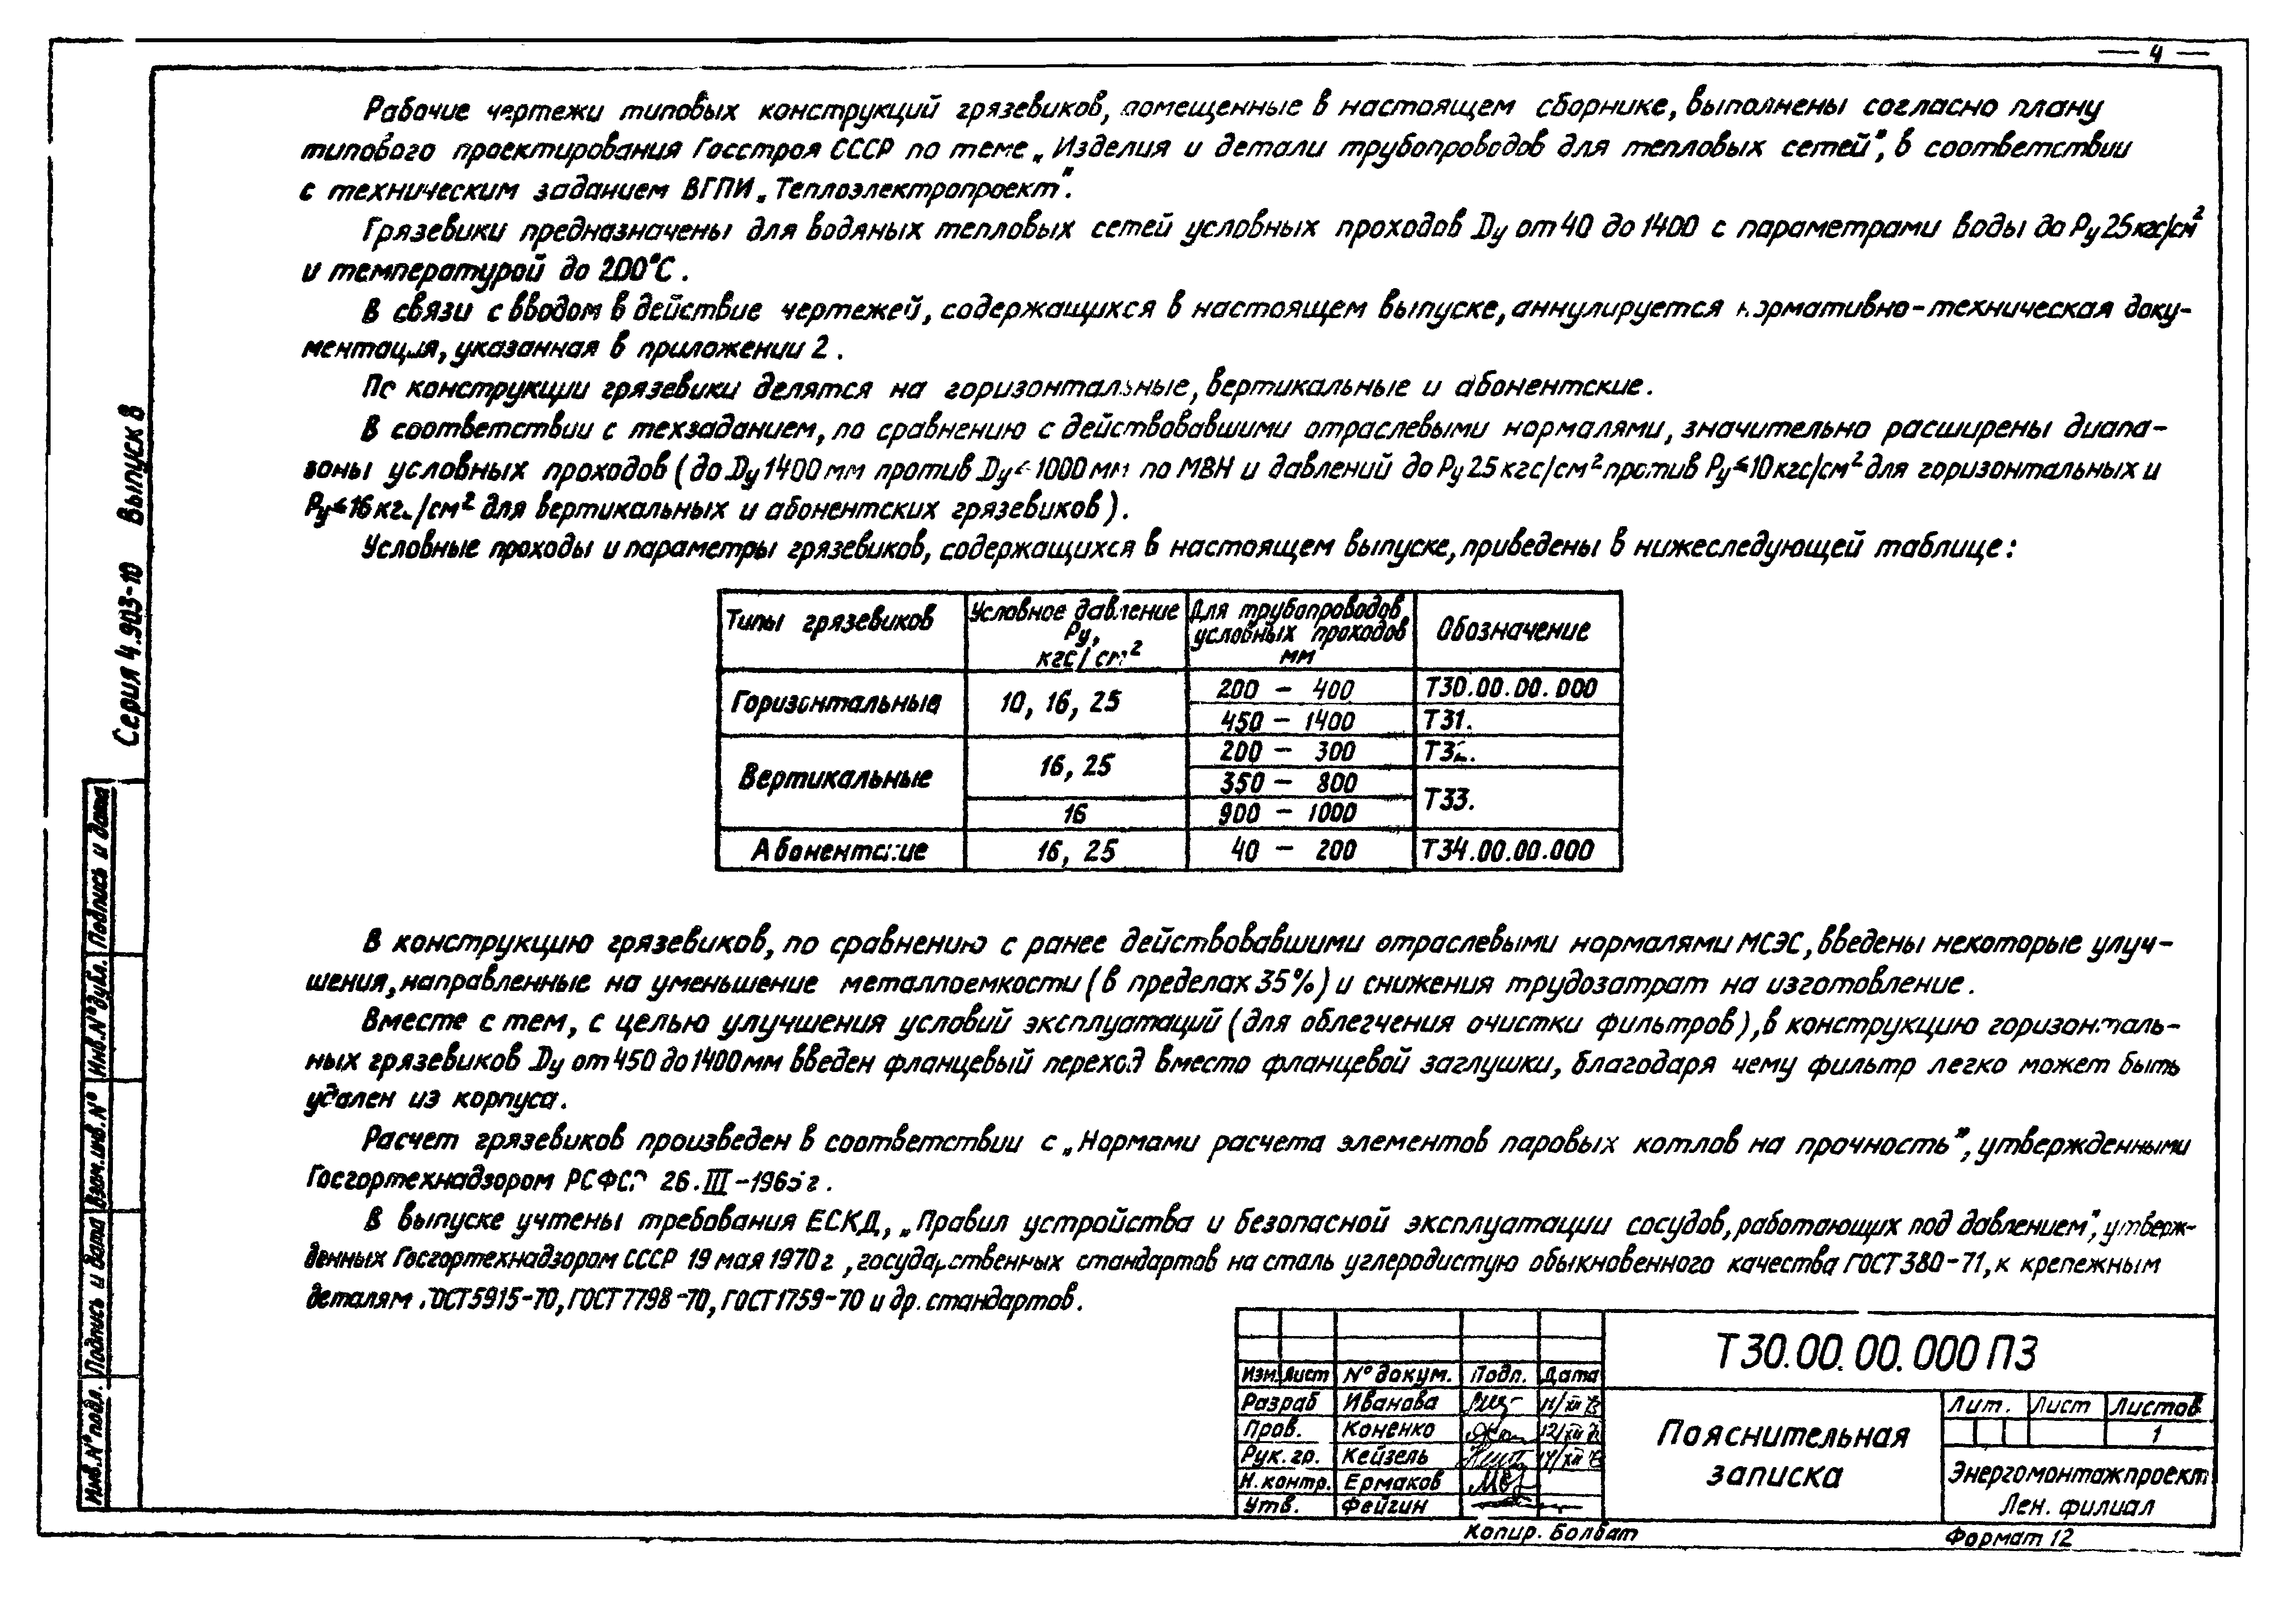 — 4 —
Рабочие чертежи типовых конструкций грязевиков, помещенные в настоящем сборнике, выполнены согласно плану
типового проектирования Госстроя СССР по теме „Изделия и детали трубопроводов для тепловых сетей", в соответствии
с техническим заданием ВГПИ „Теплоэлектропроект".
Грязевики предназначены для водяных тепловых сетей условных проходов Ду от 40 до 1400 с параметрами воды до Ру 25 кгс/см²
и температурой до 200°С.
В связи с вводом в действие чертежей, содержащихся в настоящем выпуске, аннулируется нормативно-техническая доку-
ментация, указанная в приложении 2.
По конструкции грязевики делятся на горизонтальные, вертикальные и абонентские.
В соответствии с техзаданием, по сравнению с действовавшими отраслевыми нормалями, значительно расширены диапа-
зоны условных проходов (до Ду 1400 мм против Ду < 1000 мм по МВН и давлений до Ру 25 кгс/см² против Ру ≤ 10 кгс/см² для горизонтальных и
Ру ≤ 16 кгс/см² для вертикальных и абонентских грязевиков).
Условные проходы и параметры грязевиков, содержащихся в настоящем выпуске, приведены в нижеследующей таблице:
Типы грязевиков
Условное давление
Ру,
кгс/см²
Для трубопроводов
условных проходов
мм
Обозначение
Горизонтальные
10, 16, 25
200 — 400
Т30.00.00.000
450 — 1400
Т31.
Вертикальные
16, 25
200 — 300
Т32.
350 — 800
Т33.
16
900 — 1000
Абонентские
16, 25
40 — 200
Т34.00.00.000
В конструкцию грязевиков, по сравнению с ранее действовавшими отраслевыми нормалями МСЭС, введены некоторые улуч-
шения, направленные на уменьшение металлоемкости (в пределах 35%) и снижения трудозатрат на изготовление.
Вместе с тем, с целью улучшения условий эксплуатаций (для облегчения очистки фильтров), в конструкцию горизонталь-
ных грязевиков Ду от 450 до 1400 мм введен фланцевый переход вместо фланцевой заглушки, благодаря чему фильтр легко может быть
удален из корпуса.
Расчет грязевиков произведен в соответствии с „Нормами расчета элементов паровых котлов на прочность", утвержденными
Госгортехнадзором РСФСР 26.III-1965г.
В выпуске учтены требования ЕСКД, „Правил устройства и безопасной эксплуатации сосудов, работающих под давлением", утверж-
денных Госгортехнадзором СССР 19 мая 1970г, государственных стандартов на сталь углеродистую обыкновенного качества ГОСТ 380-71, к крепежным
деталям ГОСТ 5915-70, ГОСТ 7798-70, ГОСТ 1759-70 и др. стандартов.
Серия 4.903-10 Выпуск 8
Инв.N°подл.
Подпись и дата
Взам.инв.N°
Инв.N°дубл.
Подпись и дата
Изм.
Лист
N° докум.
Подп.
Дата
Разраб
Иванова
Пров.
Коненко
Рук.гр.
Кейзель
Н.контр.
Ермаков
Утв.
Фейгин
Т30.00.00.000 ПЗ
Пояснительная
записка
Лит.
Лист
Листов
1
Энергомонтажпроект
Лен. филиал
Копир. Болбат
Формат 12